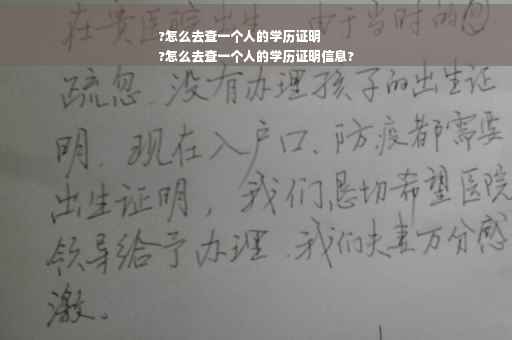 在贵医院出生、由于当时的
?怎么去查一个人的学历证明
?怎么去查一个人的学历证明信息?
疏忽.没有办理孩子的出生证
明.现在入户口、防疫都需要
出生证明,我们恳切希望医院
领导给予办理.我们夫妻万分感
激。